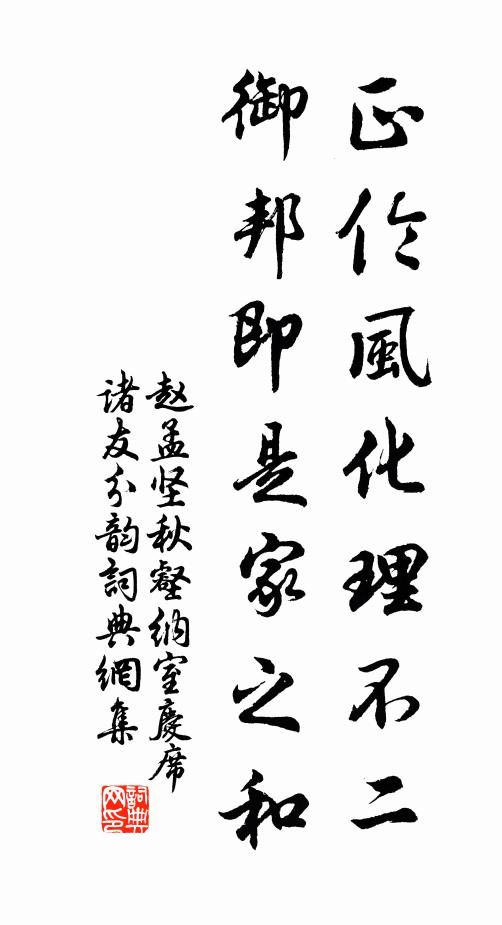 正伦風化理不二
御邦即是家之和
赵孟坚秋壑纳室慶席
诸友分韵詞典網集
詞典
网印